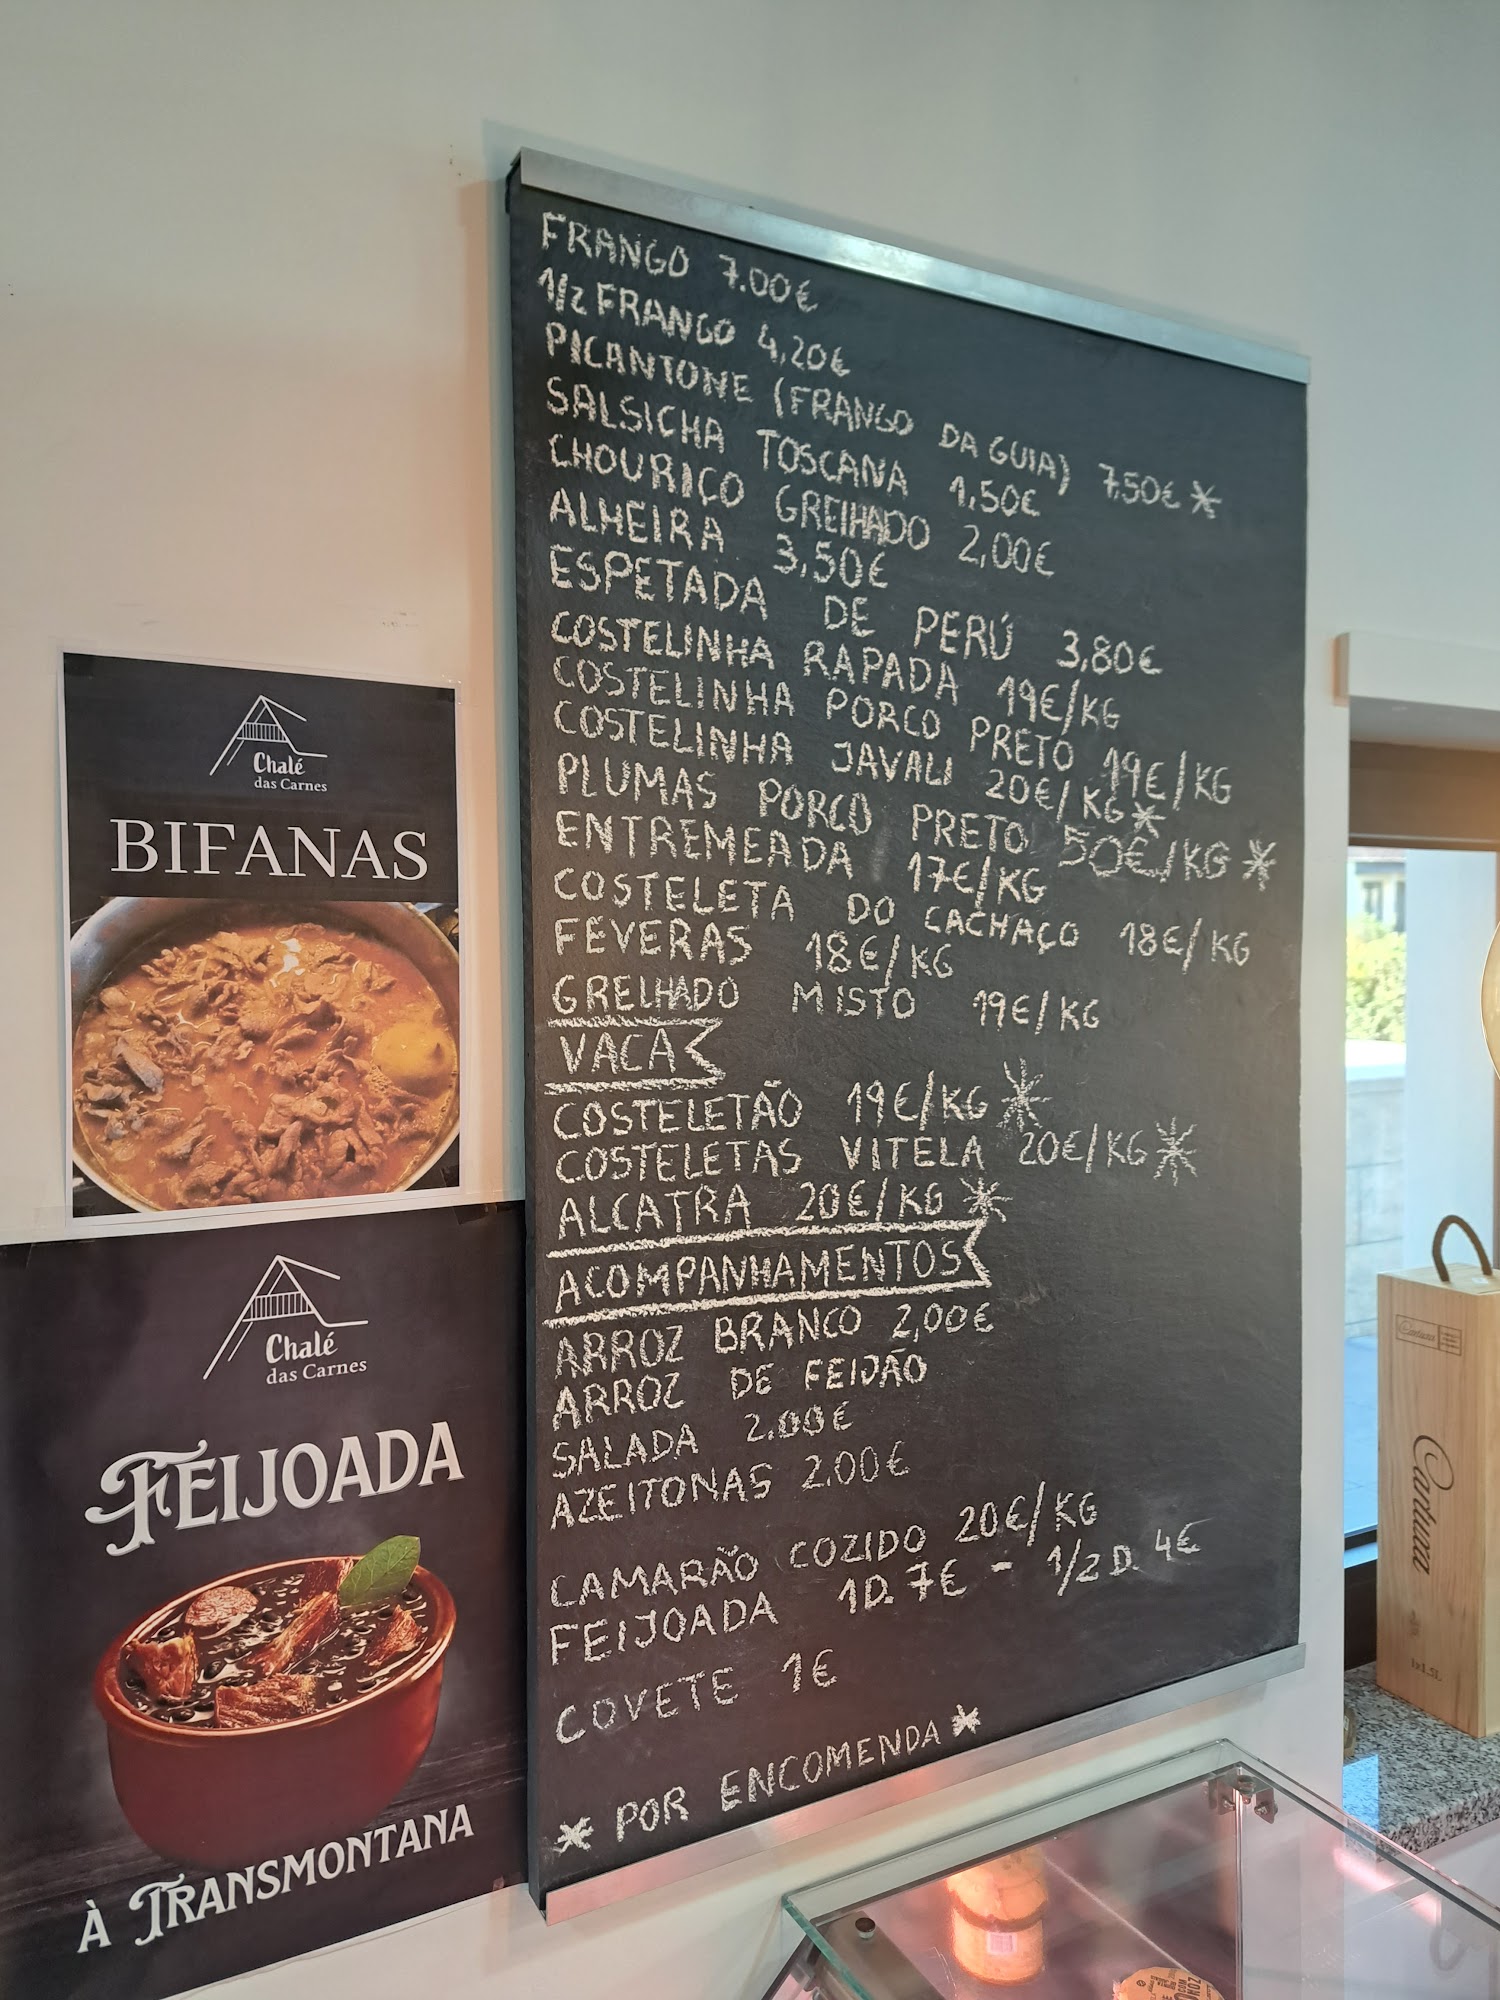 FRANGO 7.00€
1/2 FRANGO 4,20€
PICANTONE (FRANGO DA GUIA) 7,50€ *
SALSICHA TOSCANA 1,50€
CHOURIÇO GRELHADO 2,00€
ALHEIRA 3,50€
ESPETADA DE PERÚ 3,80€
COSTELINHA RAPADA 19€/KG
COSTELINHA PORCO PRETO 19€/KG
COSTELINHA JAVALI 20€/KG *
PLUMAS PORCO PRETO 50€/KG *
ENTREMEADA 17€/KG
COSTELETA DO CACHAÇO 18€/KG
FEVERAS 18€/KG
GRELHADO MISTO 19€/KG
VACA
COSTELETÃO 19€/KG *
COSTELETAS VITELA 20€/KG *
ALCATRA 20€/KG *
ACOMPANHAMENTOS
ARROZ BRANCO 2,00€
ARROZ DE FEIJÃO
SALADA 2.00€
AZEITONAS 2.00€
CAMARÃO COZIDO 20€/KG
FEIJOADA 1D. 7€ - 1/2 D. 4€
COVETE 1€
* POR ENCOMENDA *
Chalé
das Carnes
BIFANAS
Chalé
das Carnes
FEIJOADA
À TRANSMONTANA
Cartuxa
Cartuxa
1x1.5L